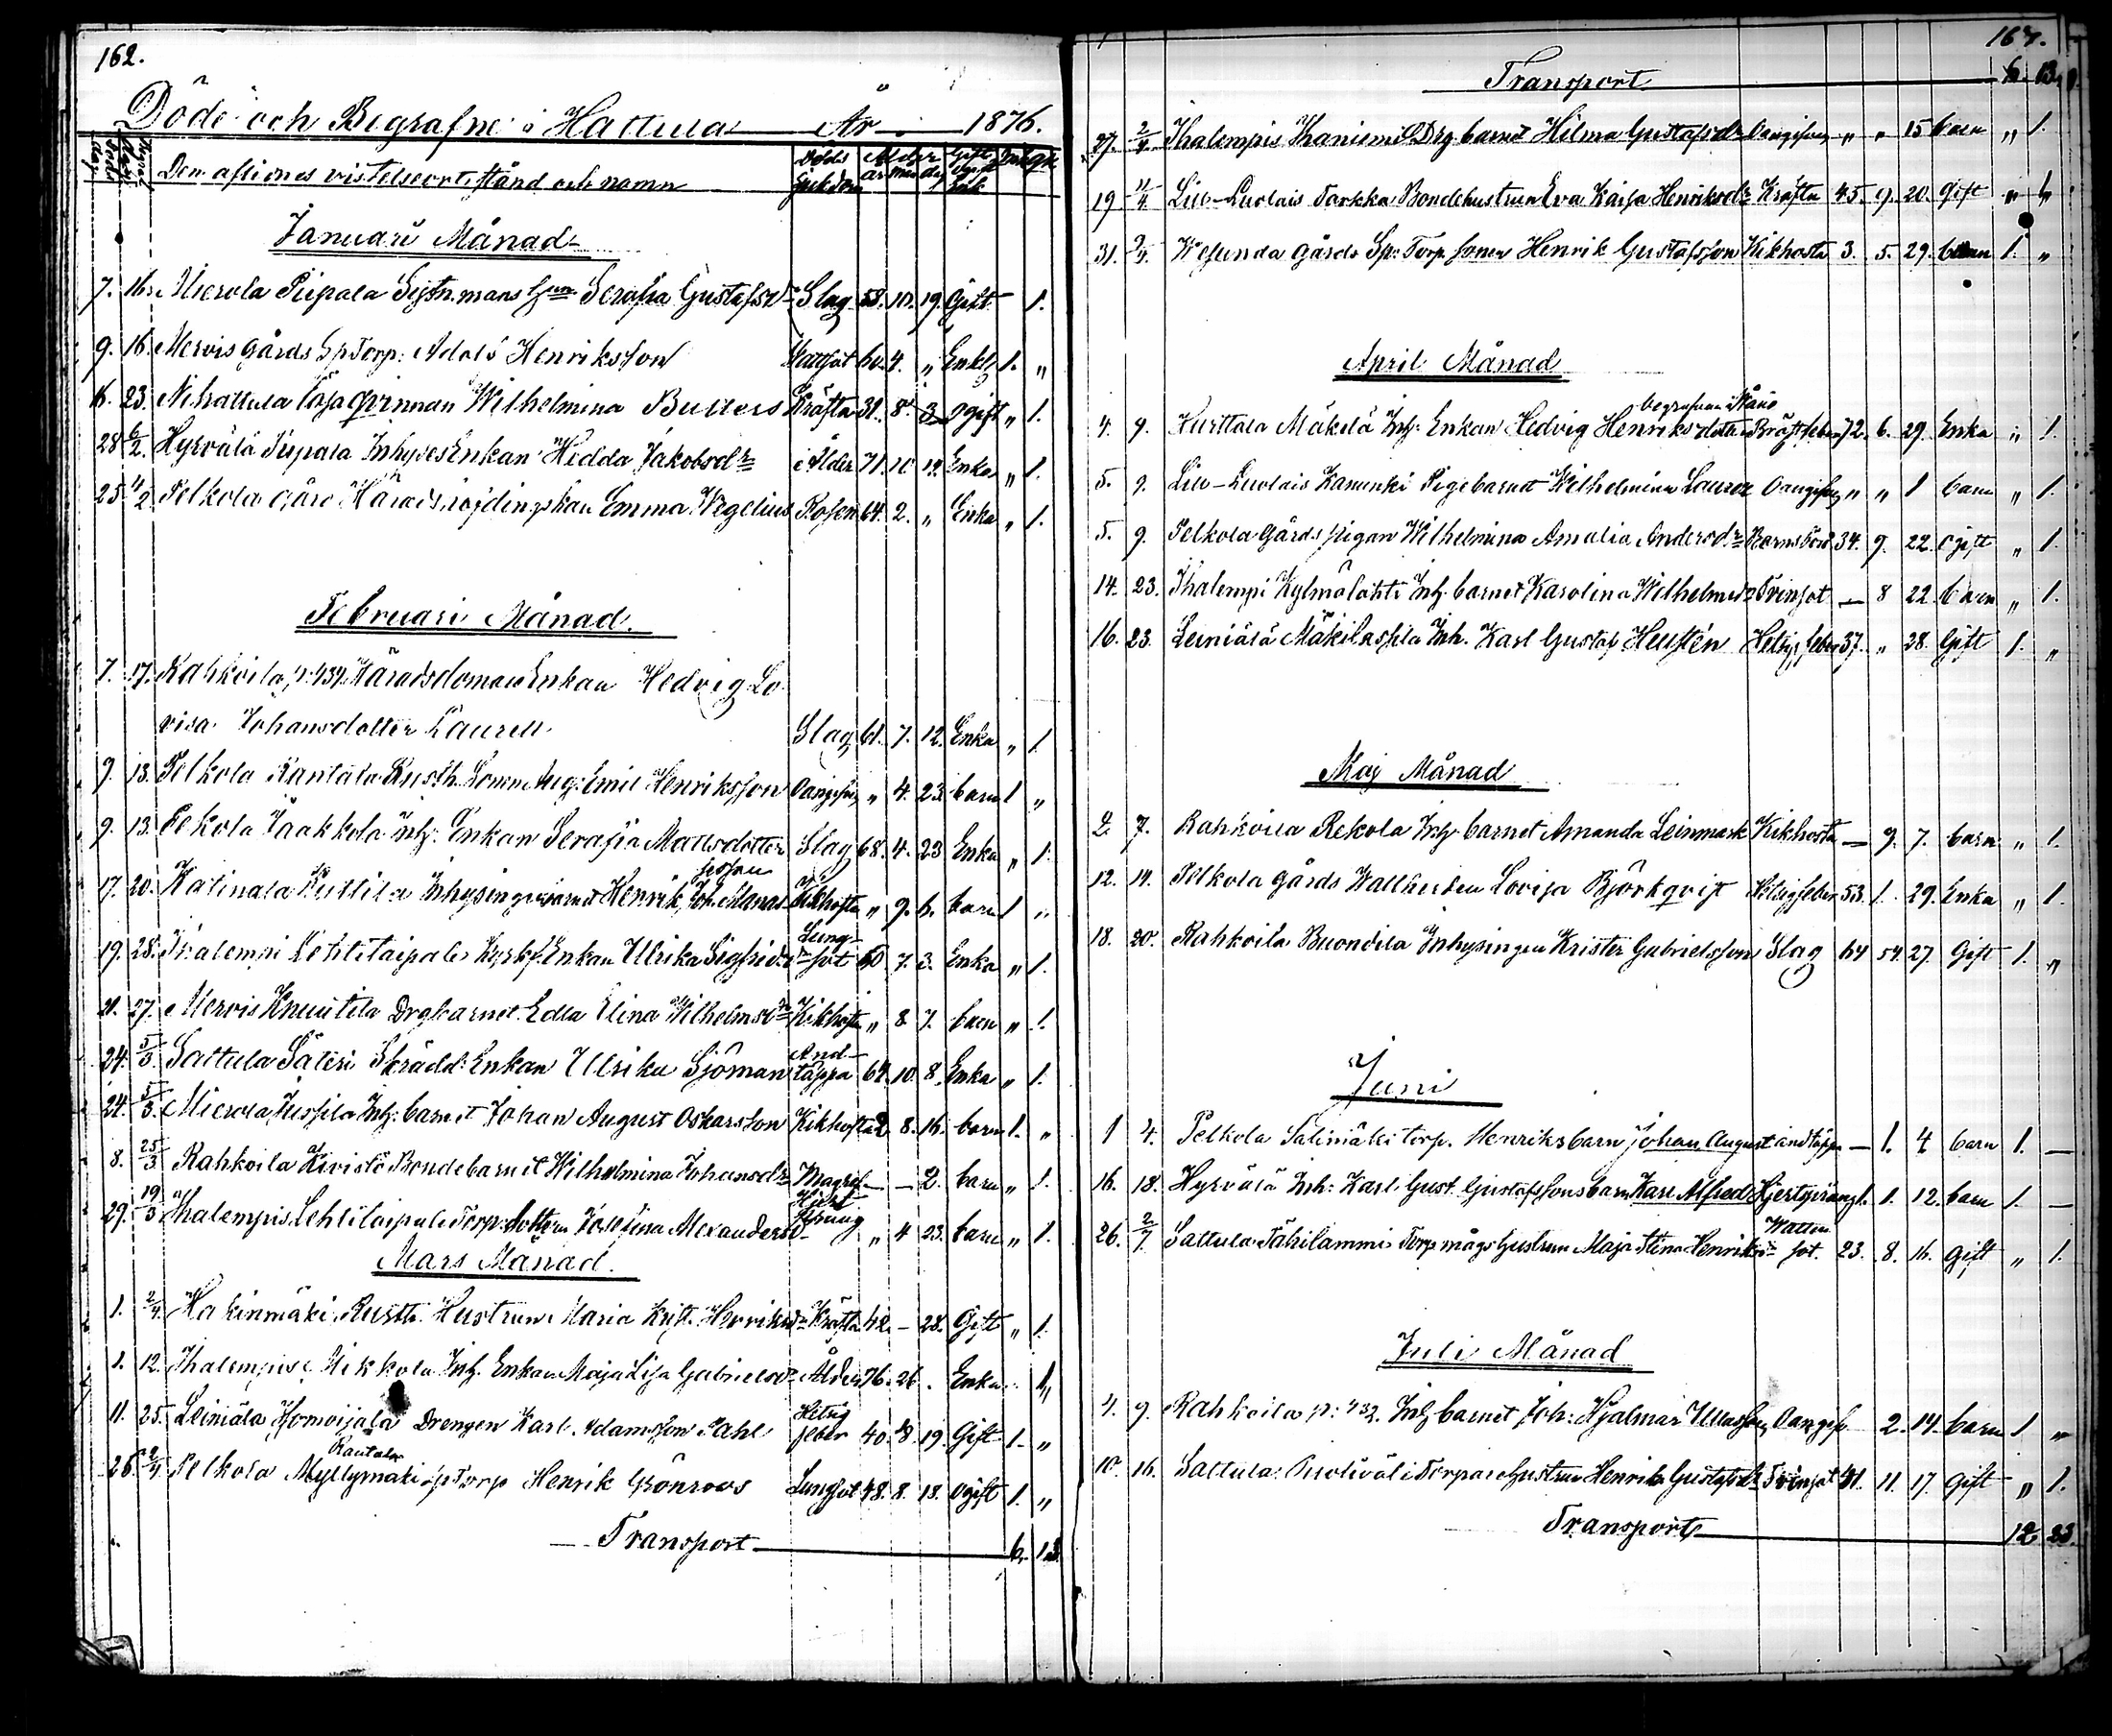 162.
Döde och Begrafne i Hattula År 1876.
Den aflidnes vistelseort, stånd och namn
Januari Månad
7. 16. Mierola Piipala Serafia Gustafsdr Slag 58. 10. 19. Gift 1.
9. 16. Mervis gårds Sp Torp: Adolf Henriksson 60. 4. „ Enkl. 1. „
16. 23. Nihattula Wilhelmina Kräfta 31. 8. 3 ogift „ 1.
28 6/2. Hyrvälä Piipala Inhyses Enkan Hedda Jakobsdr Ålder 71. 10 Enka „ 1.
25. Pelkola gård Emma Wegelius Rosen 64. 2. „ Enka „ 1.
Februari Månad.
7. 17. Rahkoila Häradsdomars Enkan Hedvig Lo
visa Johansdotter Laurell Slag 61. 7. 12. Enka „ 1.
9. 13. Pelkola Rantala Rusth. Sonen Aug. Emil Henriksson Oangifven „ 4. 23. barn 1 „
9. 13. Pekola Jaakkola Inh: Enkan Serafia Mattsdotter Slag 68. 4. 23 Enka „ 1.
17. 20. Katinala Henrik Joh. Kikhosta „ 9. 6. barn 1 „
19. 28. Ihalempi Lehtitaipale Enkan Ulrika Sigfridsdr Lung-
sot 60 7. 3. Enka „ 1.
21. 27. Mervis Knuutila Drgbarnet Edla Elina Wilhelmsdr Kikhosta „ 8 7. barn „ 1.
24. 5/3. Sattula Säteri Skrädd: Enkan Ulrika Sjöman And-
täppa 64. 10. 8. Enka „ 1.
24. 5/3. Mierola Jussila Inh: barnet Johan August Oskarsson Kikhosta 2 8. 16. barn 1. „
8. 25/3 Rahkoila Kivistö Bondebarnet Wilhelmina Johansdr — — 2. barn „ 1.
29. 19/3 Ihalempis Lehtitaipale Torp: dottern Josefina Alexandersd „ 4 23. barn „ 1.
Mars Månad.
1. 2/4. Hakinmäki Rusth. Hustrun Maria Krist. Henriksdr Kräfta 42. — 28. Gift „ 1.
1. 12. Ihalempis Mikkola Inh. Enkan Maja Lisa Gabrielsdr Ålder 76. 26. Enka 1.
11. 25. Leiniälä Homoijala Drengen Karl Adamsson Stahl Hetsig
feber 40. 8. 19. Gift 1. „
Rantala
26. 2/4 Pelkola Myllymäki sp Torp Henrik Grönroos Lungsot 48. 8. 18. ogift 1. „
Transport 6. 13.
Transport 6. 13.
27. 2/4 Ihalempis Drg barnet Hilma Gustafsdr Oangifven „ „ 15 barn „ 1.
19 Liu-Luolais Torkka Bondehustrun Eva Kaisa Henriksdr Kräfta 45. 9. 20. Gift „ 1.
31. Wesunda gårds Sp: Torp. sonen Henrik Gustafsson Kikhosta 3. 5. 29. barn 1. „
April Månad
4. 9. Hurttala Mäkelä Inh: Enkan Hedvig Henriksdotter Bröstfeber 72. 6. 29. Enka „ 1.
5. 9. Liu-Luolais Kanunki Pigobarnet Wilhelmina Oangifven „ „ 1 barn „ 1.
5. 9. Pelkola Gårds pigan Wilhelmina Amalia Andersdr Barnsbörd 34. 9. 22. Ogift „ 1.
14. 23. Ihalempi Kylmälahti Inh. barnet Karolina Wilhelmsdr Trinsot — 8 22. barn „ 1.
16. 23. Leiniälä Mäkilassila Inh. Karl Gustaf Hellstén Hetsig feber 37. „ 28. Gift 1. „
Maj Månad
2 7. Rahkoila Rekola Inh. barnet Amanda Leinmark Kikhosta — 9. 7. barn „ 1.
12. 14. Pelkola gårds Lovisa Björkqvist Hetsig feber 53. 1. 29. Enka „ 1.
18. 20. Rahkoila Inhysingen Krister Gabrielsson Slag 64 27. Gift 1. „
Juni
1 4. Pelkola Salinmäki torp. Henriks barn Johan August andtäppa — 1. 4 barn 1. —
16. 18. Hyrvälä Inh: Karl Gust. Gustafssons barn Karl Alfred 1. 12. barn 1. —
26. 2/7. Sattula Tähilammi Torp mågs hustrun Maja Stina Henriksdr Watten
sot. 23. 8. 16. gift „ 1.
Juli Månad
4. 9. Rahkoila Inh. barnet Joh: Hjalmar Oangif. 2. 14. barn 1 „
10. 16. Sattula Torpare hustrun Henrika Gustafsdr Trinsot 41. 11. 17. Gift „ 1.
Transport 12. 23.